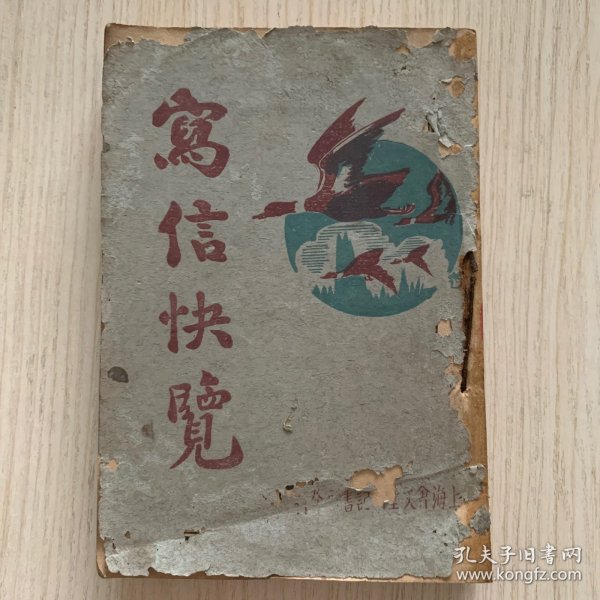 寫信快覽
上海會文堂記書
孔夫子旧书网
www.kongfz.com